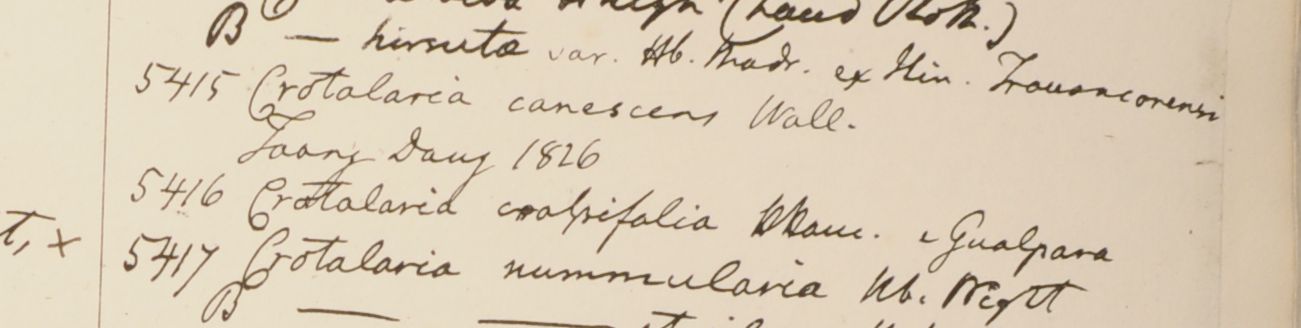 (haud Roth.)
B — hirsuta var. Hb. Madr. ex Itin. Travancorensi
5415 Crotalaria canescens Wall.
Taong Daung 1826
5416 Crotalaria Ham. e Gualpara
5417 Crotalaria nummularia Hb. Wight
B — —
t, x